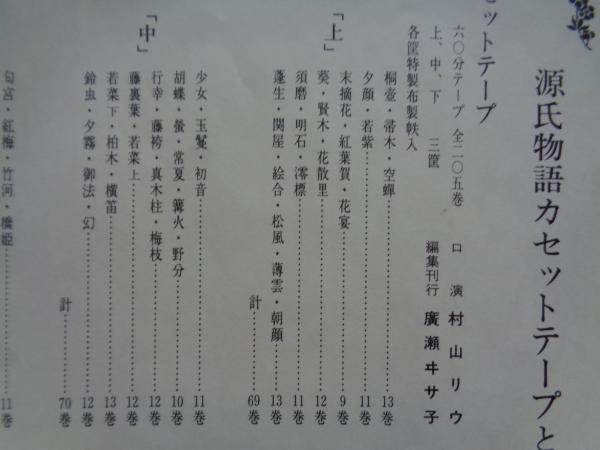 源氏物語カセットテープと
セットテープ
六〇分テープ 全二〇五巻
上、中、下 三筐
各筐特製布製帙入
口演 村山リウ
編集刊行 廣瀬ヰサ子
「上」
桐壺・帚木・空蟬………13巻
夕顔・若紫………11巻
末摘花・紅葉賀・花宴………9巻
葵・賢木・花散里………12巻
須磨・明石・澪標………11巻
蓬生・関屋・絵合・松風・薄雲・朝顔………13巻
計………69巻
「中」
少女・玉鬘・初音………11巻
胡蝶・螢・常夏・篝火・野分………10巻
行幸・藤袴・真木柱・梅枝………12巻
藤裏葉・若菜上………12巻
若菜下・柏木・横笛………13巻
鈴虫・夕霧・御法・幻………12巻
計………70巻
匂宮・紅梅・竹河・橋姫………11巻